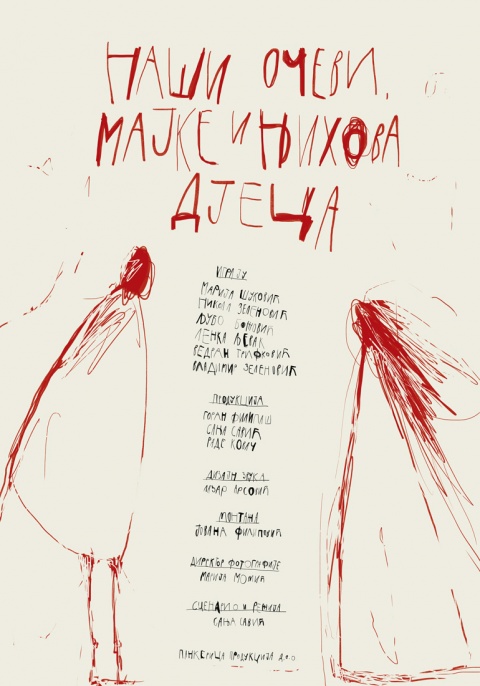 НАШИ ОЧЕВИ,
МАЈКЕ И ЊИХОВА
ДЈЕЦА
ИГРАЈУ
МАРИЈА ШУКОВИЋ
НИКОЛА ЗЕЛЕНОВИЋ
ЉУБО БОЖОВИЋ
ЛЕНКА
ВЕДРАН ТРИФКОВИЋ
ВЛАДИМИР ЗЕЛЕНОВИЋ
ПРОДУКЦИЈА
ГОРАН
САЊА САВИЋ
РАДЕ
ДИЗАЈН ЗВУКА
ЛАЗАР АРСОВИЋ
МОНТАЖА
ЈОВАНА ФИЛИПОВИЋ
ДИРЕКТОР ФОТОГРАФИЈЕ
МАРИЈА МОМИЋ
СЦЕНАРИО И РЕЖИЈА
САЊА САВИЋ
ПРОДУКЦИЈА Д.О.О